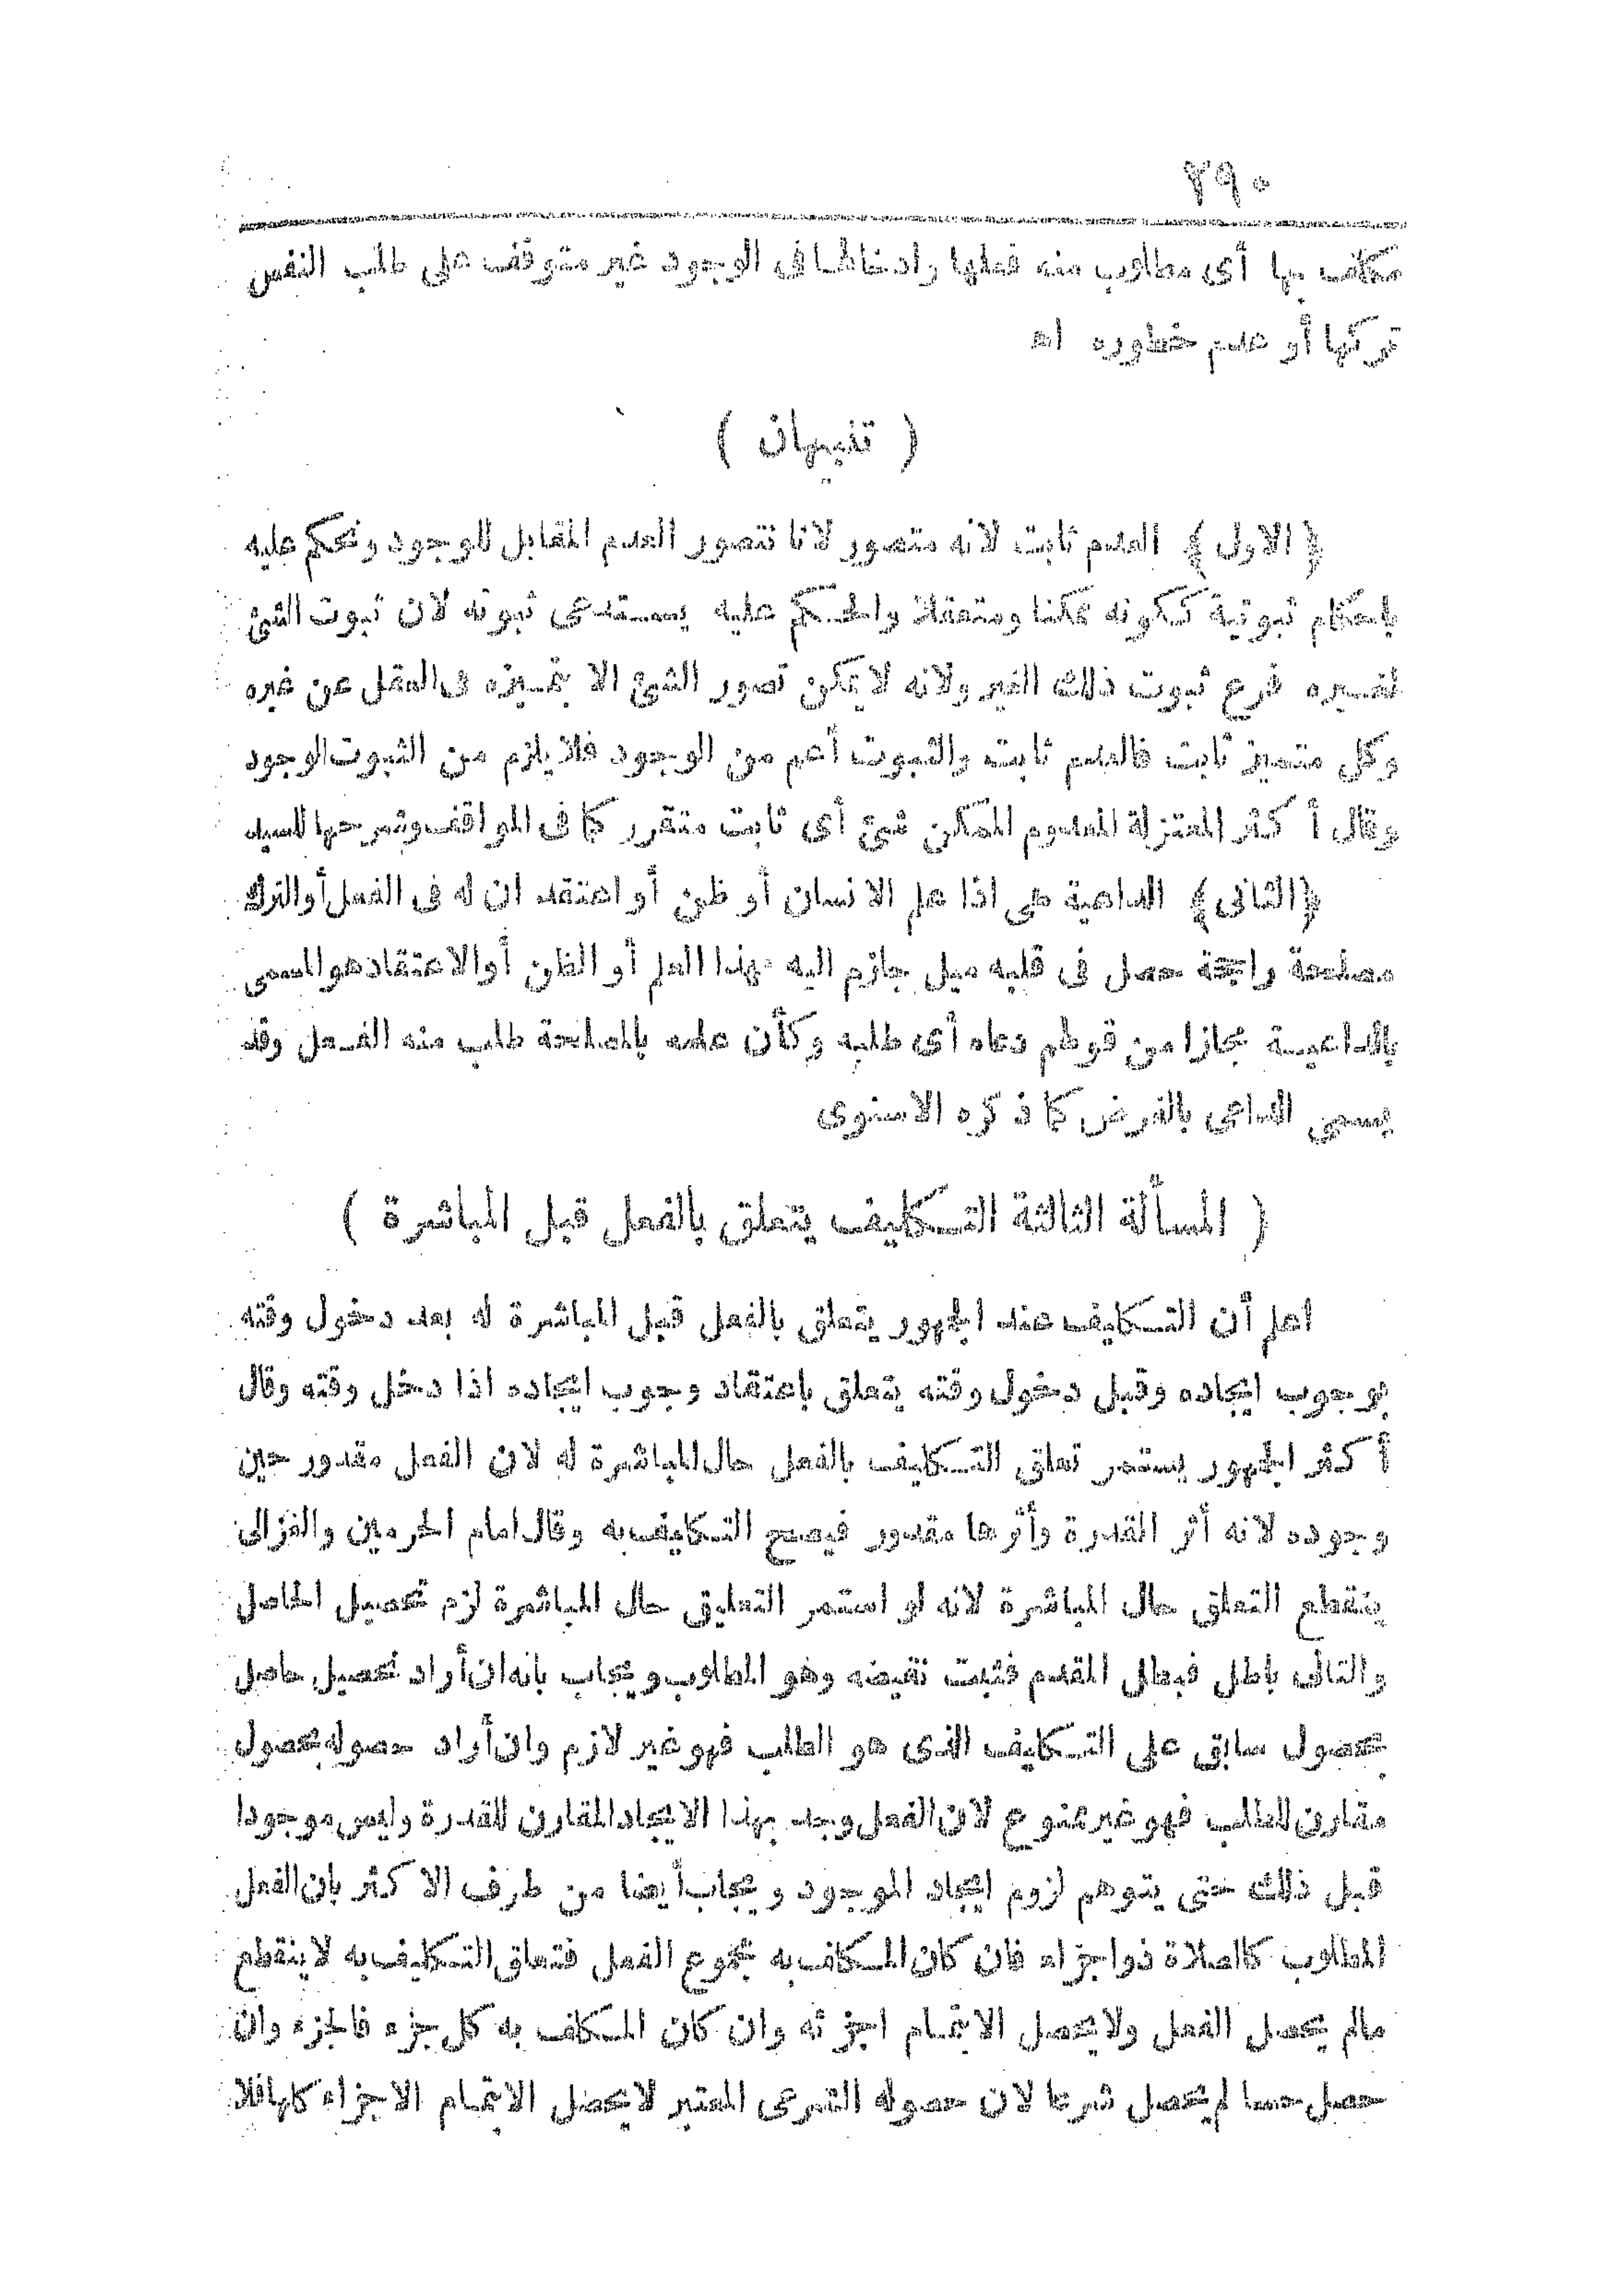 ٢٩٠
مكلف بها أى مطلوب منه فعلها وادخالها فى الوجود غير متوقف على طلب النفس
تركها أو عدم خطوره اه
( تنبيهان )
﴿ الاول ﴾ العدم ثابت لانه متصور لانا نتصور العدم المقابل للوجود ونحكم عليه
باحكام ثبوتية ككونه ممكنا ومتعقلا والحكم عليه يستدعى ثبوته لان ثبوت الشئ
لغيره فرع ثبوت ذلك الغير ولانه لا يمكن تصور الشئ الا بتميزه فى العقل عن غيره
وكل متميز ثابت فالعدم ثابت والثبوت أعم من الوجود فلا يلزم من الثبوت الوجود
وقال أكثر المعتزلة المعدوم الممكن شئ أى ثابت متقرر كما فى المواقف وشرحها للسيد
﴿ الثانى ﴾ الداعية هى اذا علم الانسان أو ظن أو اعتقد ان له فى الفعل أو الترك
مصلحة راجحة حصل فى قلبه ميل جازم اليه فهذا العلم أو الظن أو الاعتقاد هو المسمى
بالداعية مجازا من قولهم دعاه أى طلبه وكأن علمه بالمصلحة طلب منه الفعل وقد
يسمى الداعى بالغرض كما ذكره الاسنوى
( المسألة الثالثة التكليف يتعلق بالفعل قبل المباشرة )
اعلم أن التكليف عند الجمهور يتعلق بالفعل قبل المباشرة له بعد دخول وقته
بوجوب ايجاده وقبل دخول وقته يتعلق باعتقاد وجوب ايجاده اذا دخل وقته وقال
أكثر الجمهور يستمر تعلق التكليف بالفعل حال المباشرة له لان الفعل مقدور حين
وجوده لانه أثر القدرة وأثرها مقدور فيصح التكليف به وقال امام الحرمين والغزالى
ينقطع التعلق حال المباشرة لانه لو استمر التعليق حال المباشرة لزم تحصيل الحاصل
والتالى باطل فبطل المقدم فثبت نقيضه وهو المطلوب ويجاب بانه ان أراد تحصيل حاصل
بحصول سابق على التكليف الذى هو الطلب فهو غير لازم وان أراد حصوله بحصول
مقارن للطلب فهو غير ممنوع لان الفعل وجد بهذا الايجاد المقارن للقدرة وليس موجودا
قبل ذلك حتى يتوهم لزوم ايجاد الموجود ويجاب أيضا من طرف الاكثر بان الفعل
المطلوب كالصلاة ذو اجزاء فان كان المكلف به مجموع الفعل فتعلق التكليف به لا ينقطع
مالم يحصل الفعل ولا يحصل الا بتمام اجزئه وان كان المكلف به كل جزء فالجزء وان
حصل حسا لم يحصل شرعا لان حصوله الشرعى المعتبر لا يحصل الا بتمام الاجزاء كلها فلا